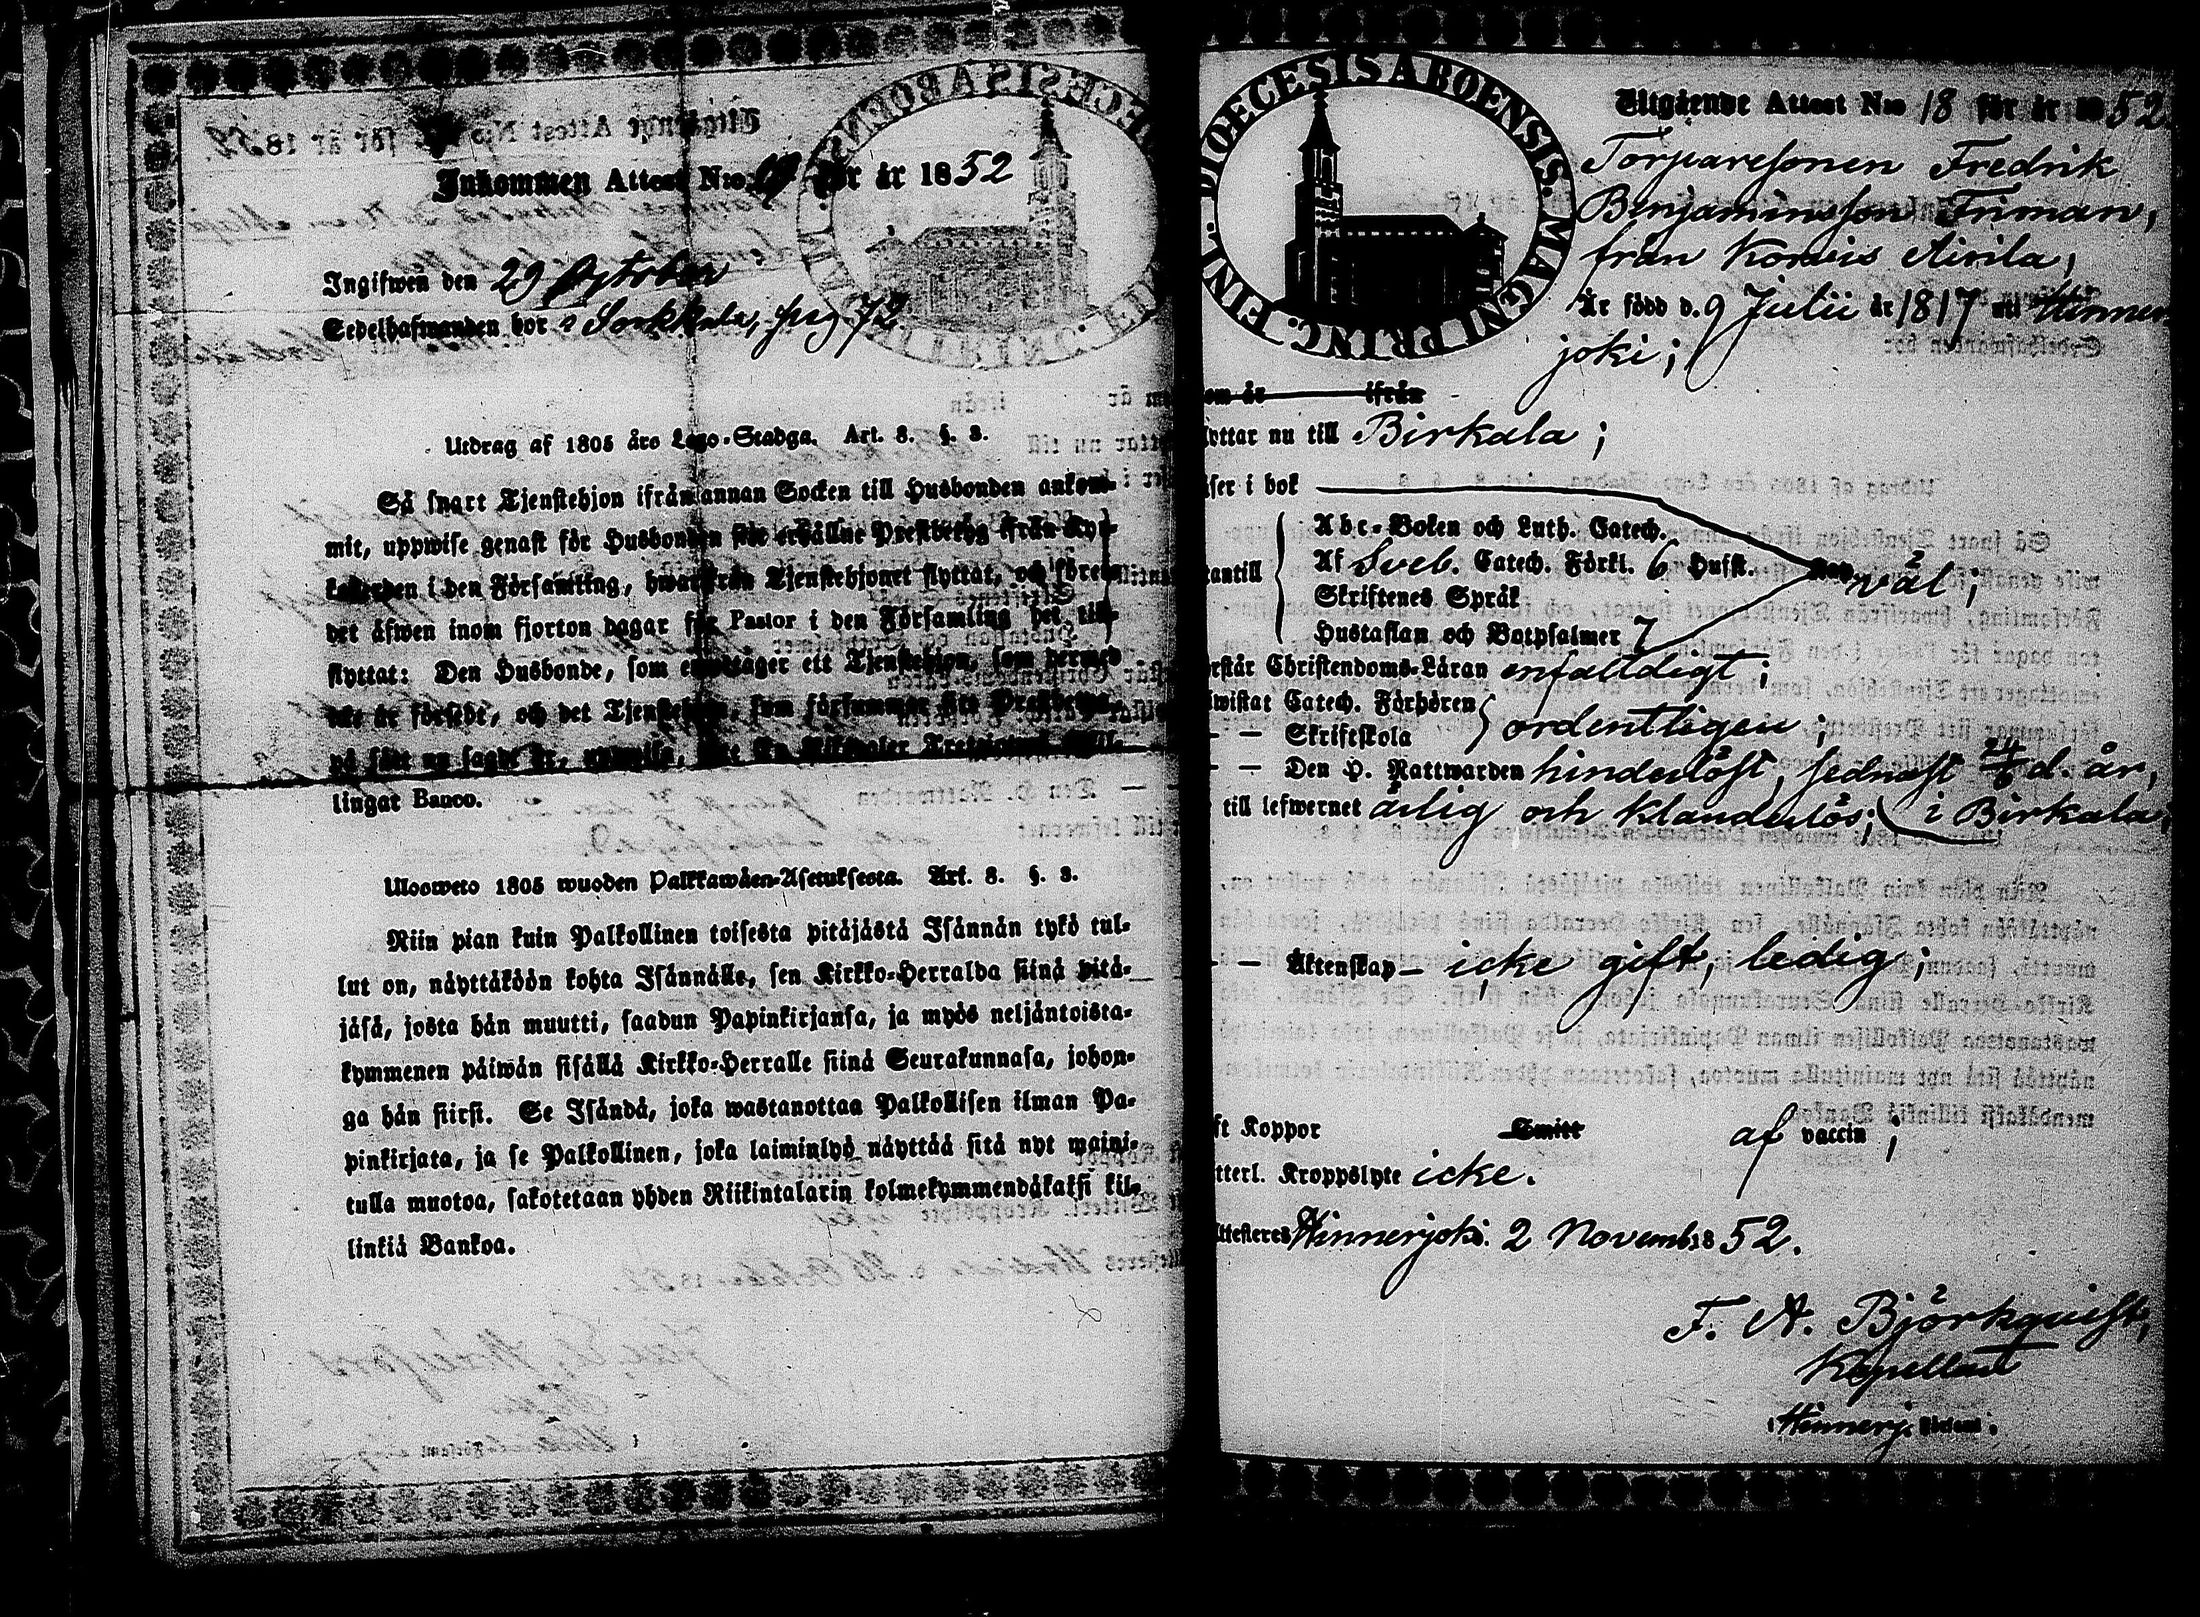 Inkommen Attest N:o 19 för år 1852
Ingifwen den 29 October
Sedelhafwanden bor i Sorkkala, pag 72.
Utdrag af 1805 års Lego-Stadga. Art. 8. §. 3.
Så snart Tjenstehjon ifrån annan Socken till Husbonden ankom-
mit, uppwise genast för Husbonden sitt erhållne Prestbetyg ifrån Kyr-
koherden i den Församling, hwarifrån Tjenstehjonet flyttat, och förete
det äfwen inom fjorton dagar för Pastor i den Församling det till-
flyttat: Den Husbonde, som emottager ett Tjenstehjon, som dermed
icke är försedt, och det Tjenstehjon, som försummar sitt Prestbetyg,
på sätt nu sagdt är, uppwisa,
lingar Banco.
Ulosweto 1805 wuoden Palkkawäen-Asetuksesta. Art. 8. §. 3.
Niin pian kuin Palkollinen toisesta pitäjästä Isännän tykö tul-
lut on, näyttäköön kohta Isännälle, sen Kirkko-Herralda siinä pitä-
jäsä, josta hän muutti, saadun Papinkirjansa, ja myös neljäntoista-
kymmenen päiwän sisällä Kirkko-Herralle siinä Seurakunnasa, johon-
ga hän siirsi. Se Isändä, joka wastanottaa Palkollisen ilman Pa-
pinkirjata, ja se Palkollinen, joka laiminlyö näyttää sitä nyt maini-
tulla muotoa, sakotetaan yhden Riikintalarin kolmekymmendäkaksi kil-
linkiä Bankoa.
DIOECESIS ABOENSIS. MAGNI PRINC. FINL.
Utgående Attest N:o 18 för år 1852.
Torparesonen Fredrik
Benjaminsson Friman,
från Korvis Airila,
Är född d. 9 Julii år 1817 uti Hinner-
joki;
om år ifrån
yttar nu till Birkala;
äser i bok
Abc-Boken och Luth. Catech.
antill Af Sveb. Catech. Förkl. 6 Hufst. väl;
Skriftenes Språk
Hustaflan och Botpsalmer 7
rstår Christendoms-Läran enfaldigt;
wistat Catech. Förhören
— — Skriftskola ordentligen;
— — Den H. Nattwarden hinderlöst, sednast 24/6 d. år,
till lefwernet ärlig och klanderlös; i Birkala;
— — Äktenskap — icke gift, ledig;
ft Koppor Smitt af vaccin;
tterl. Kroppslyte icke.
ttesteres Hinnerjoki. 2 Novemb. 1852.
F. A. Björkqvist,
Kapellant
i Hinnerj. Församl.